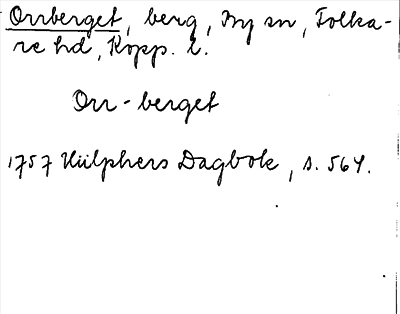 Orrberget, berg, By sn, Folka-
re hd, Kopp. l.
Orr-berget
1757 Hülphers Dagbok, s. 564.